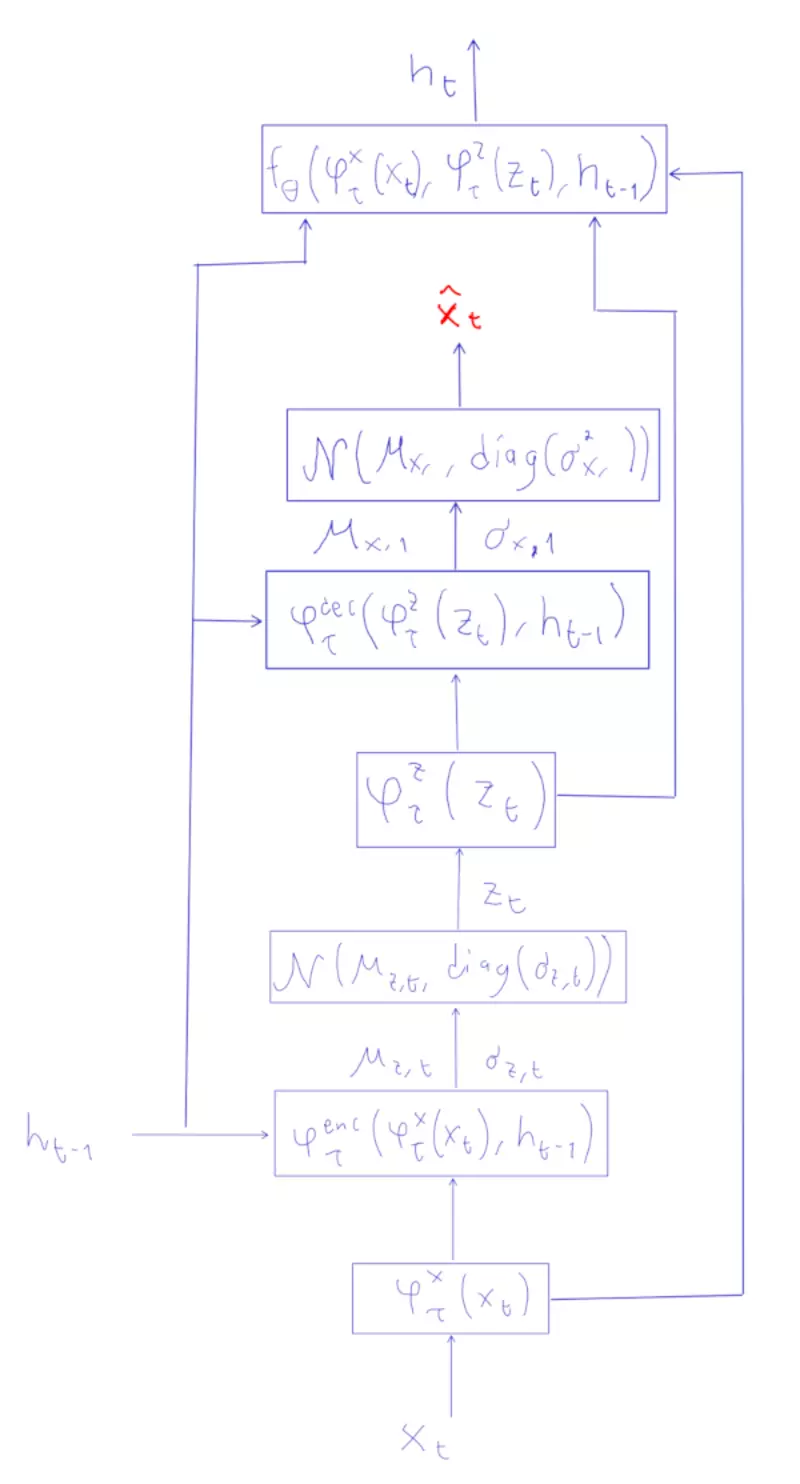 h_t
f_θ(φ_τ^x(x_t), φ_τ^z(z_t), h_{t-1})
x̂_t
N(μ_{x,}, diag(σ_{x,}^2))
μ_{x,1} σ_{x,1}
φ_τ^{dec}(φ_τ^z(z_t), h_{t-1})
φ_τ^z(z_t)
z_t
N(μ_{z,t}, diag(σ_{z,t}))
μ_{z,t} σ_{z,t}
h_{t-1} φ_τ^{enc}(φ_τ^x(x_t), h_{t-1})
φ_τ^x(x_t)
x_t